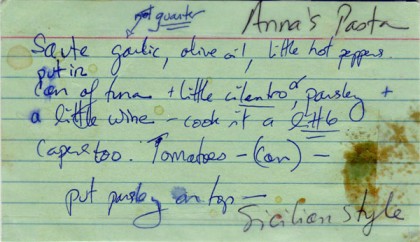 Anna's Pasta
not quarter
Saute garlic, olive oil, little hot peppers.
put in
Can of tuna + little cilentro or parsley +
a little wine - cook it a little
Capers too. Tomatoes - (can) -
put parsley on top -
Sicilian Style